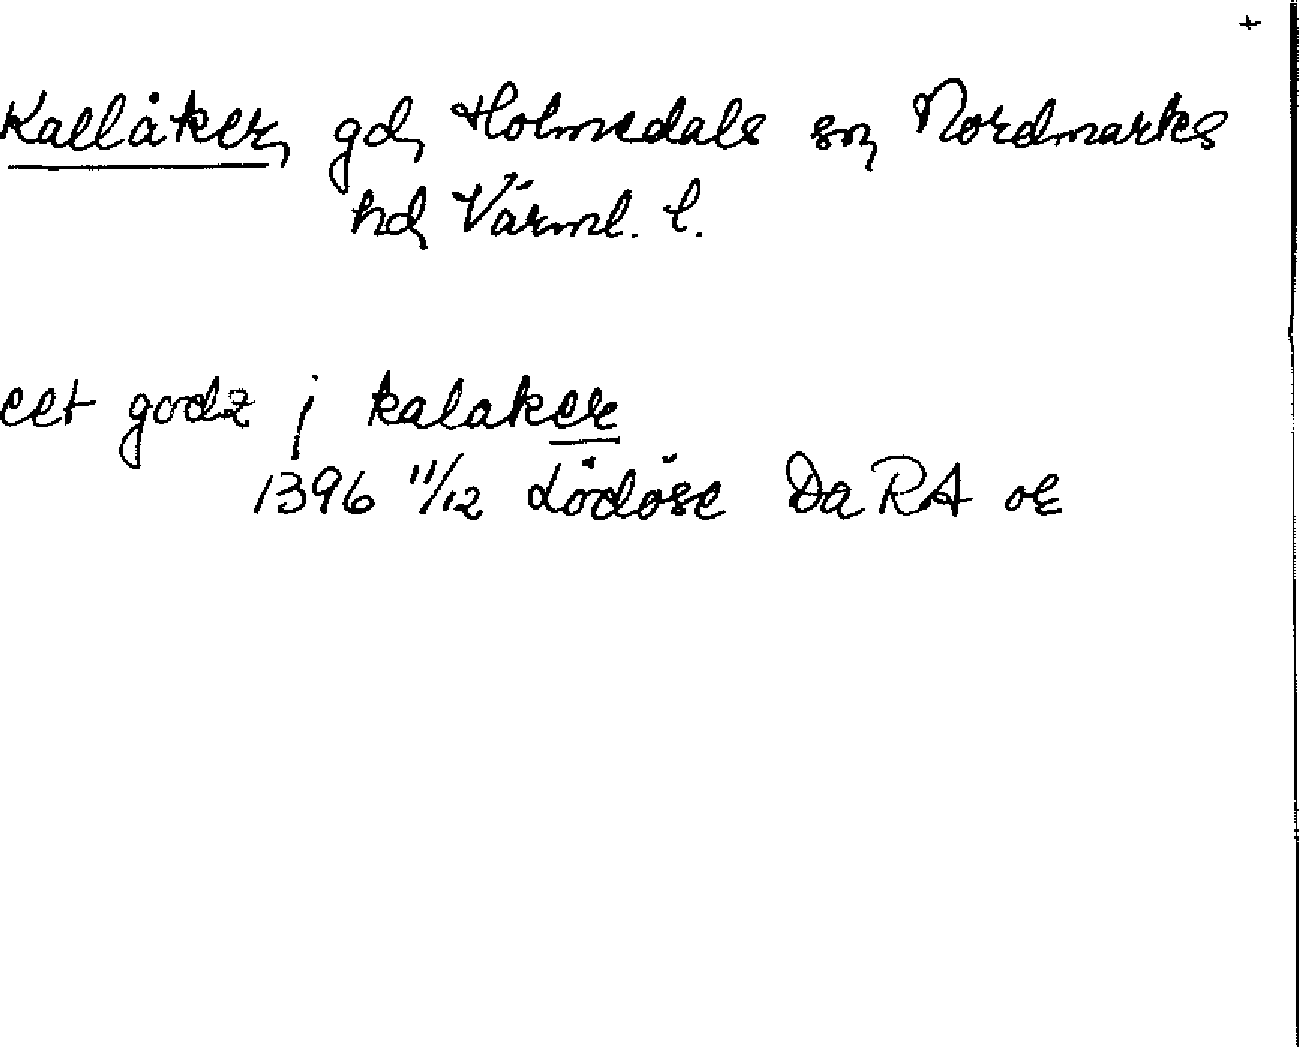 +
Kallåker, gd, Holmedals sn, Nordmarks
hd, Värml. l.
eet godz j kalaker
1396 11/12 Lödöse DaRA or